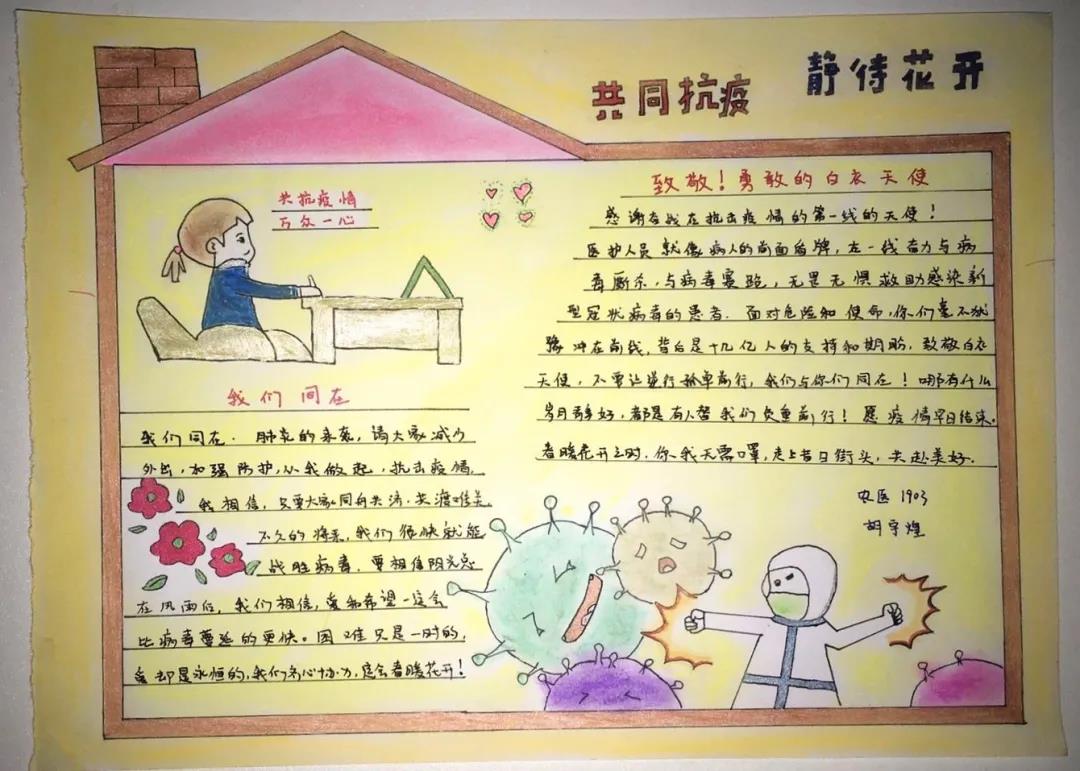 共同抗疫
静待花开
共抗疫情
万众一心
我们同在
我们同在．肺炎的来袭，请大家减少
外出，加强防护，从我做起，抗击疫情．
我相信，只要大家同舟共济，共渡难关，
不久的将来，我们很快就能
战胜病毒．要相信阳光总
在风雨后，我们相信，爱和希望一定会
比病毒蔓延的更快。困难只是一时的，
爱却是永恒的，我们齐心协力，定会春暖花开！
致敬！勇敢的白衣天使
感谢奋战在抗击疫情的第一线的天使！
医护人员就像病人的前面盾牌，在一线奋力与病
毒厮杀，与病毒赛跑，无畏无惧救助感染新
型冠状病毒的患者．面对危险和使命，你们毫不犹
豫冲在前线，背后是十几亿人的支持和期盼，致敬白衣
天使，不要让逆行孤单前行，我们与你们同在！哪有什么
岁月静好，都是有人替我们负重前行！愿疫情早日结束．
春暖花开之时．你我无需口罩，走上昔日街头，共赴美好．
农医1903
胡宇煌